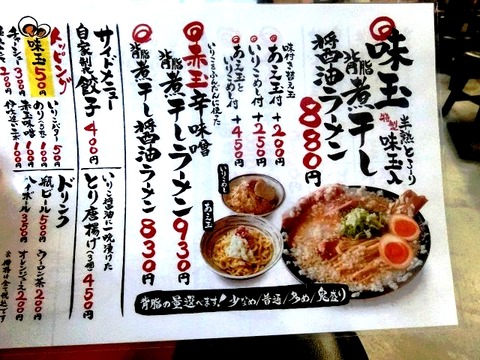 味玉
背脂煮干し
醤油ラーメン
880円
半熟とろ~り
特製味玉入
味付き替え玉
あえ玉付+200円
いりこめし付+250円
あえ玉と
いりこめし付+450円
赤玉辛味噌
背脂煮干しラーメン930円
いりこをふんだんに使った
背脂煮干し醤油ラーメン830円
いりこめし
あえ玉
背脂の量選べます!少なめ/普通/多め/鬼盛り
サイドメニュー
自家製餃子400円
いりこ醤油に一晩漬けた
とり唐揚げ(3個)450円
トッピング
味玉50円
チャーシュー300円
いりこバター50円
赤玉味噌100円
ドリンク
瓶ビール500円
ハイボール350円
ウーロン茶200円
オレンジジュース200円
※価格は全て税込です